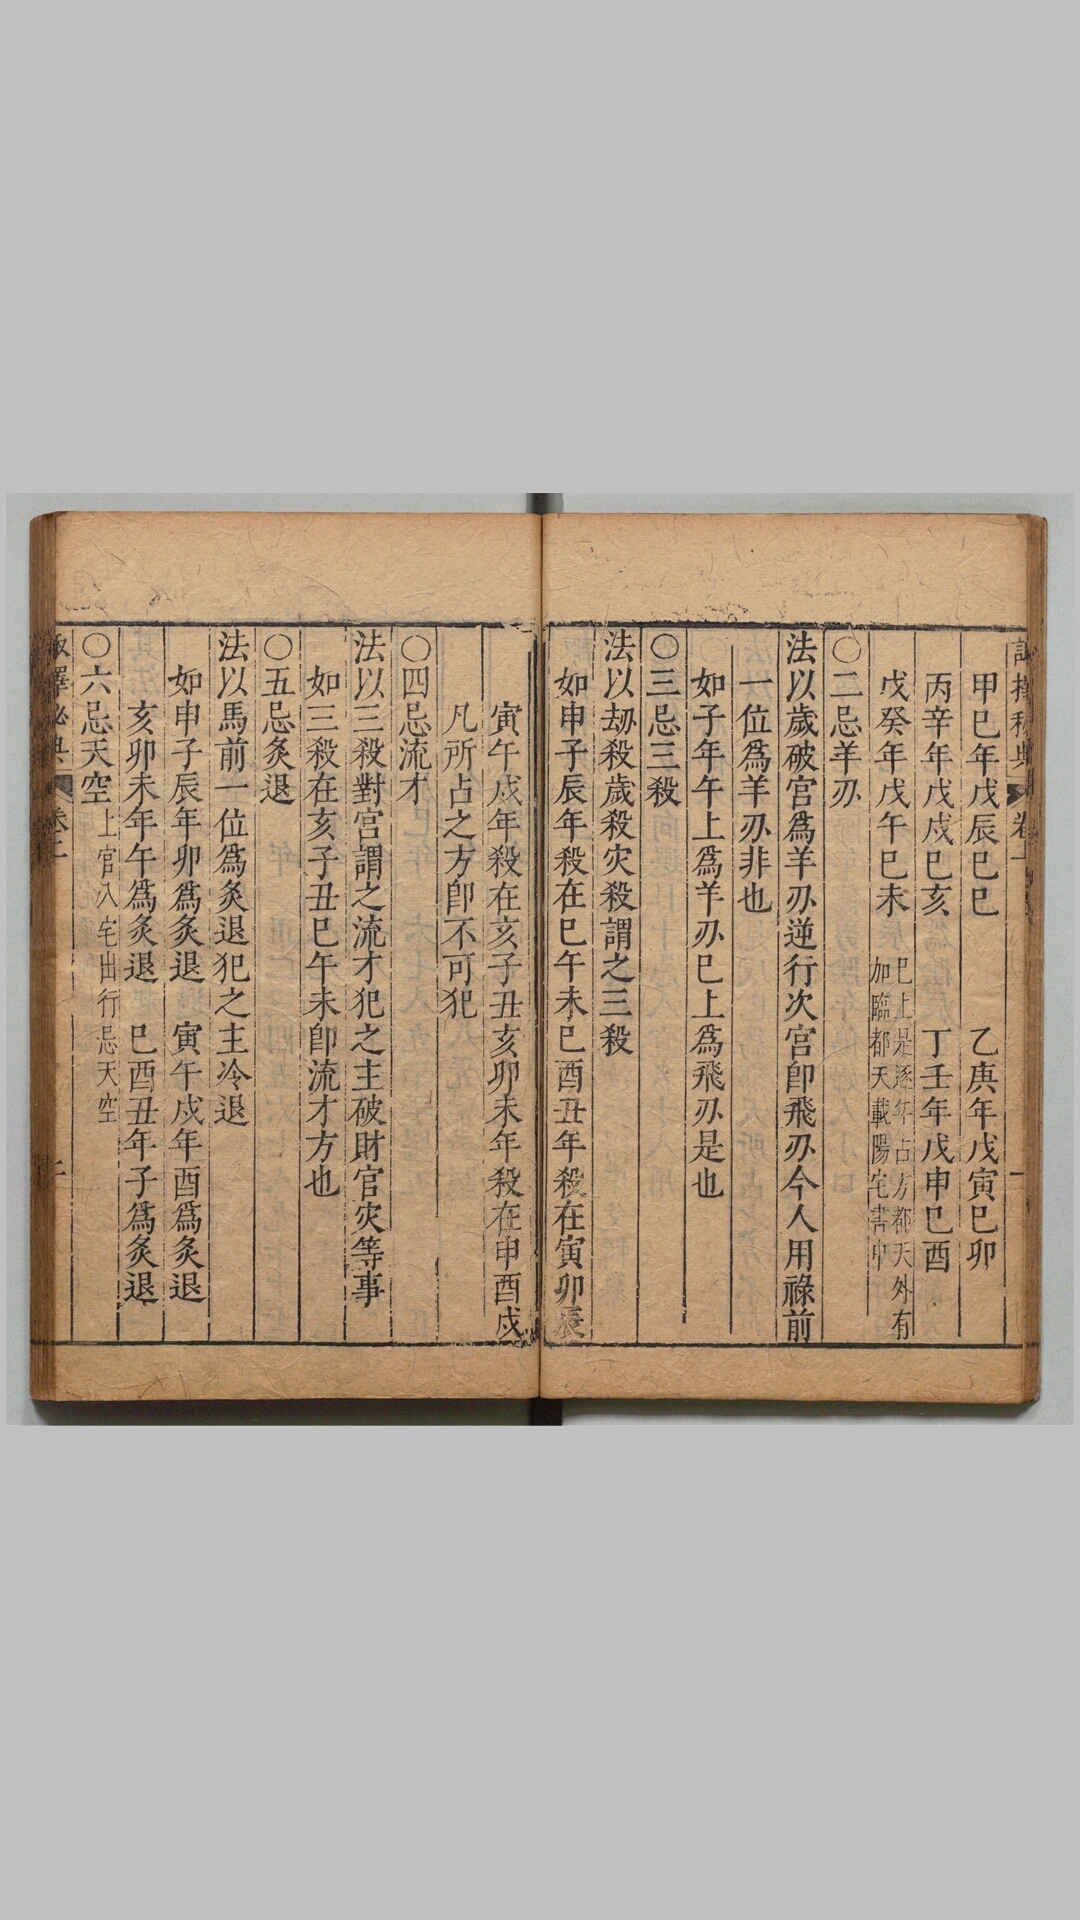 甲巳年戊辰巳巳　乙庚年戊寅巳卯
丙辛年戊戍巳亥　丁壬年戊申巳酉
戊癸年戊午巳未
巳上是逐年占方都天外有
加臨都天載陽宅書中
○二忌羊刃
法以歲破宮爲羊刃逆行次宮卽飛刃今人用祿前
一位爲羊刃非也
如子年午上爲羊刃巳上爲飛刃是也
○三忌三殺
法以刼殺歲殺灾殺謂之三殺
如申子辰年殺在巳午未巳酉丑年殺在寅卯辰
寅午戍年殺在亥子丑亥卯未年殺在申酉戍
凡所占之方卽不可犯
○四忌流才
法以三殺對宮謂之流才犯之主破財官灾等事
如三殺在亥子丑巳午未卽流才方也
○五忌灸退
法以馬前一位爲灸退犯之主冷退
如申子辰年卯爲灸退　寅午戍年酉爲灸退
亥卯未年午爲灸退　巳酉丑年子爲灸退
○六忌天空上官入宅出行忌天空